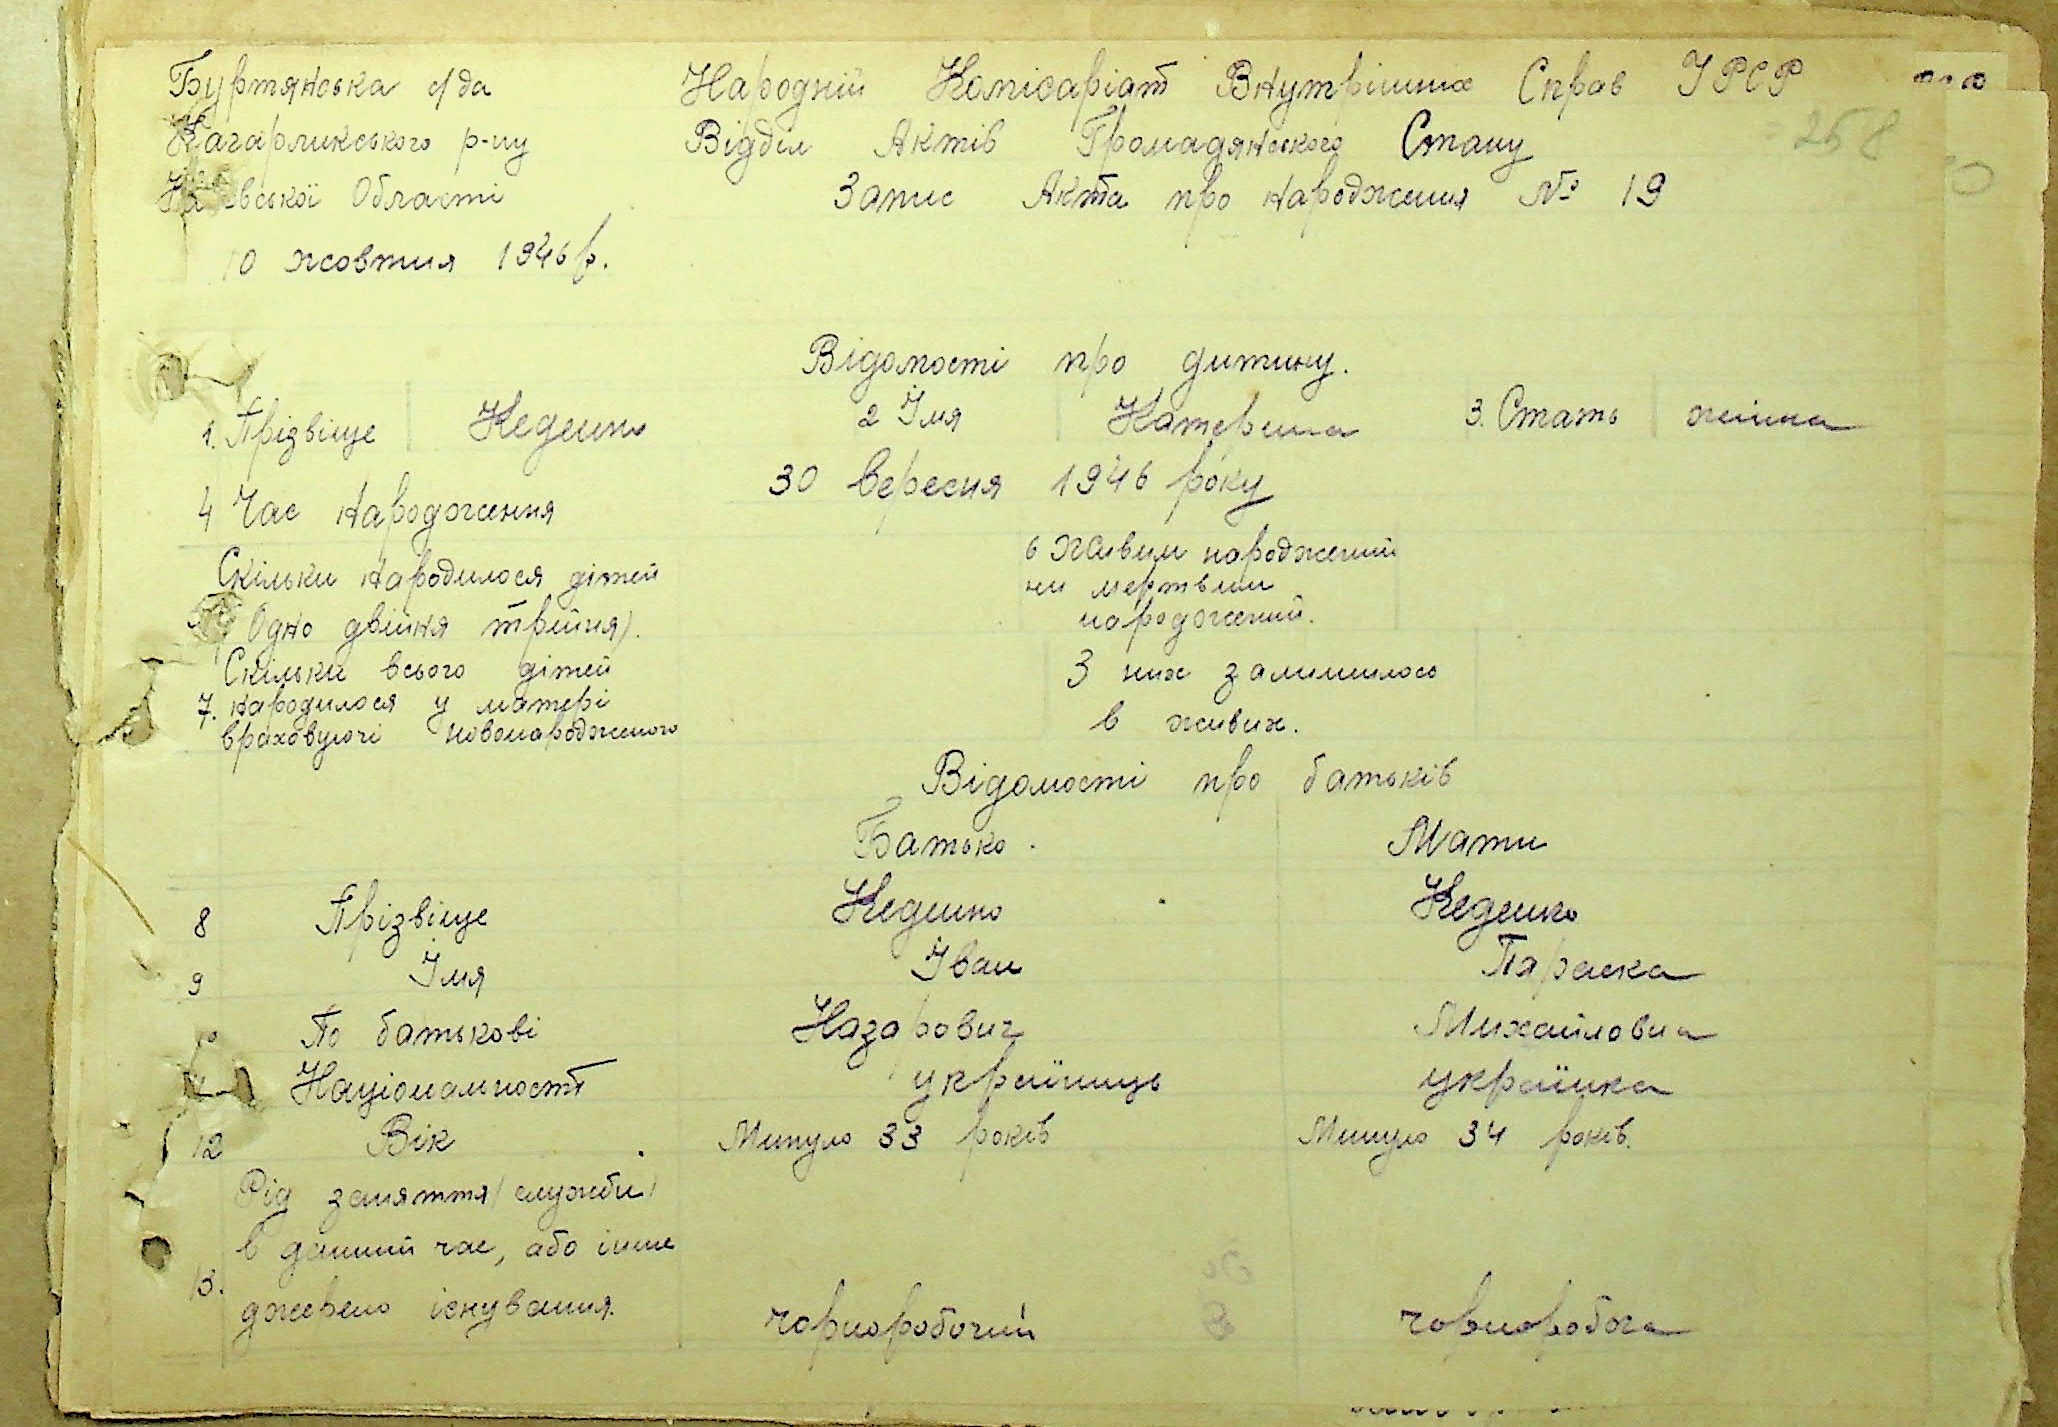 Буртянська с/да Народній Комісаріат Внутрішних Справ УРСР
Кагарликського р-ну Відділ Актів Громадянського Стану 258
Київської Області Запис Акта про народження № 19
10 жовтня 1946 р.
Відомості про дитину.
1. Прізвіще Кеденко 2 Імя Катерина 3. Стать жінка
4 Час народження 30 вересня 1946 року
Скільки народилося дітей 6 Живим народжений
Одно двійня трійня). чи мертвим
народжений.
Скільки всього дітей З них залишилось
7. народилося у матері в живих.
враховуючі новонародженого
Відомості про батьків
Батько. Мати
8 Прізвіще Кеденко Кеденко
9 Імя Іван Параска
10 По батькові Назарович Михайловна
11 Національність українець українка
12 Вік Минуло 33 років Минуло 34 років.
Рід заняття (служби)
в данний час, або інше
13. джерело існування. чорноробочий чорноробоча